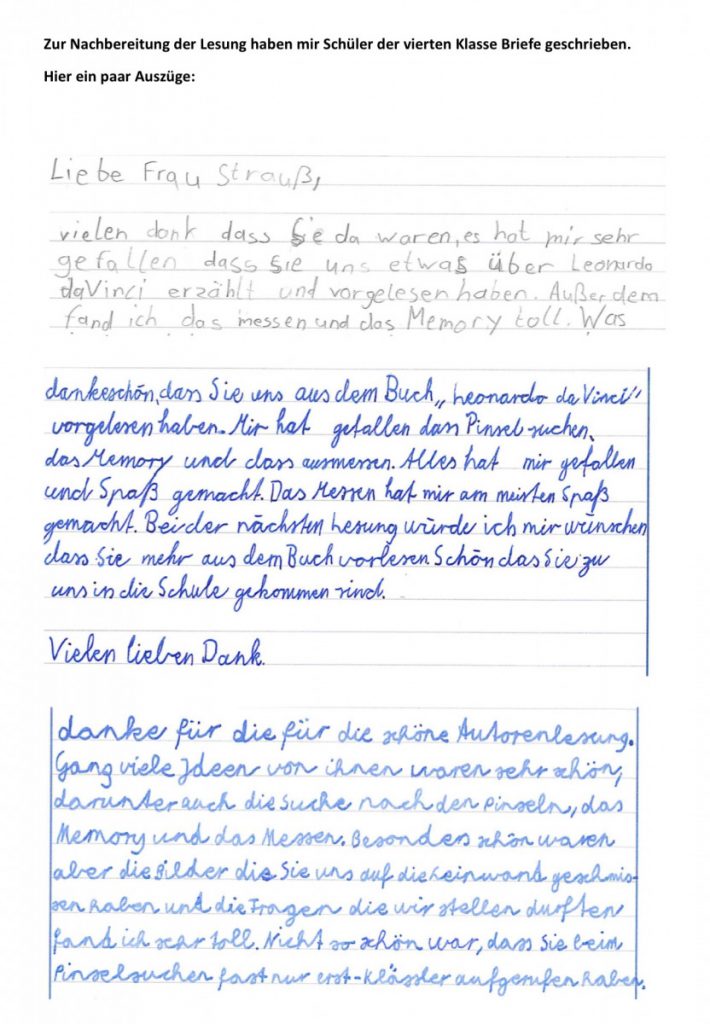 Zur Nachbereitung der Lesung haben mir Schüler der vierten Klasse Briefe geschrieben.
Hier ein paar Auszüge:
Liebe Frau Strauß,
vielen dank dass Sie da waren, es hat mir sehr
gefallen dass sie uns etwas über Leonardo
daVinci erzählt und vorgelesen haben. Außerdem
fand ich das messen und das Memory toll. Was
dankeschön, dass Sie uns aus dem Buch „Leonardo da Vinci"
vorgelesen haben. Mir hat gefallen dass Pinsel suchen,
das Memory und dass ausmessen. Alles hat mir gefallen
und Spaß gemacht. Das Messen hat mir am meisten Spaß
gemacht. Bei der nächsten Lesung würde ich mir wünschen
dass Sie mehr aus dem Buch vorlesen. Schön das Sie zu
uns in die Schule gekommen sind.
Vielen lieben Dank.
danke für die für die schöne Autorenlesung.
Ganz viele Ideen von ihnen waren sehr schön,
darunter auch die Suche nach den Pinseln, das
Memory und das Messen. Besonders schön waren
aber die Bilder die Sie uns auf die Leinwand geschmis-
sen haben und die Fragen die wir stellen durften
fand ich sehr toll. Nicht so schön war, dass Sie beim
Pinselsuchen fast nur erst-Klässler aufgerufen haben.